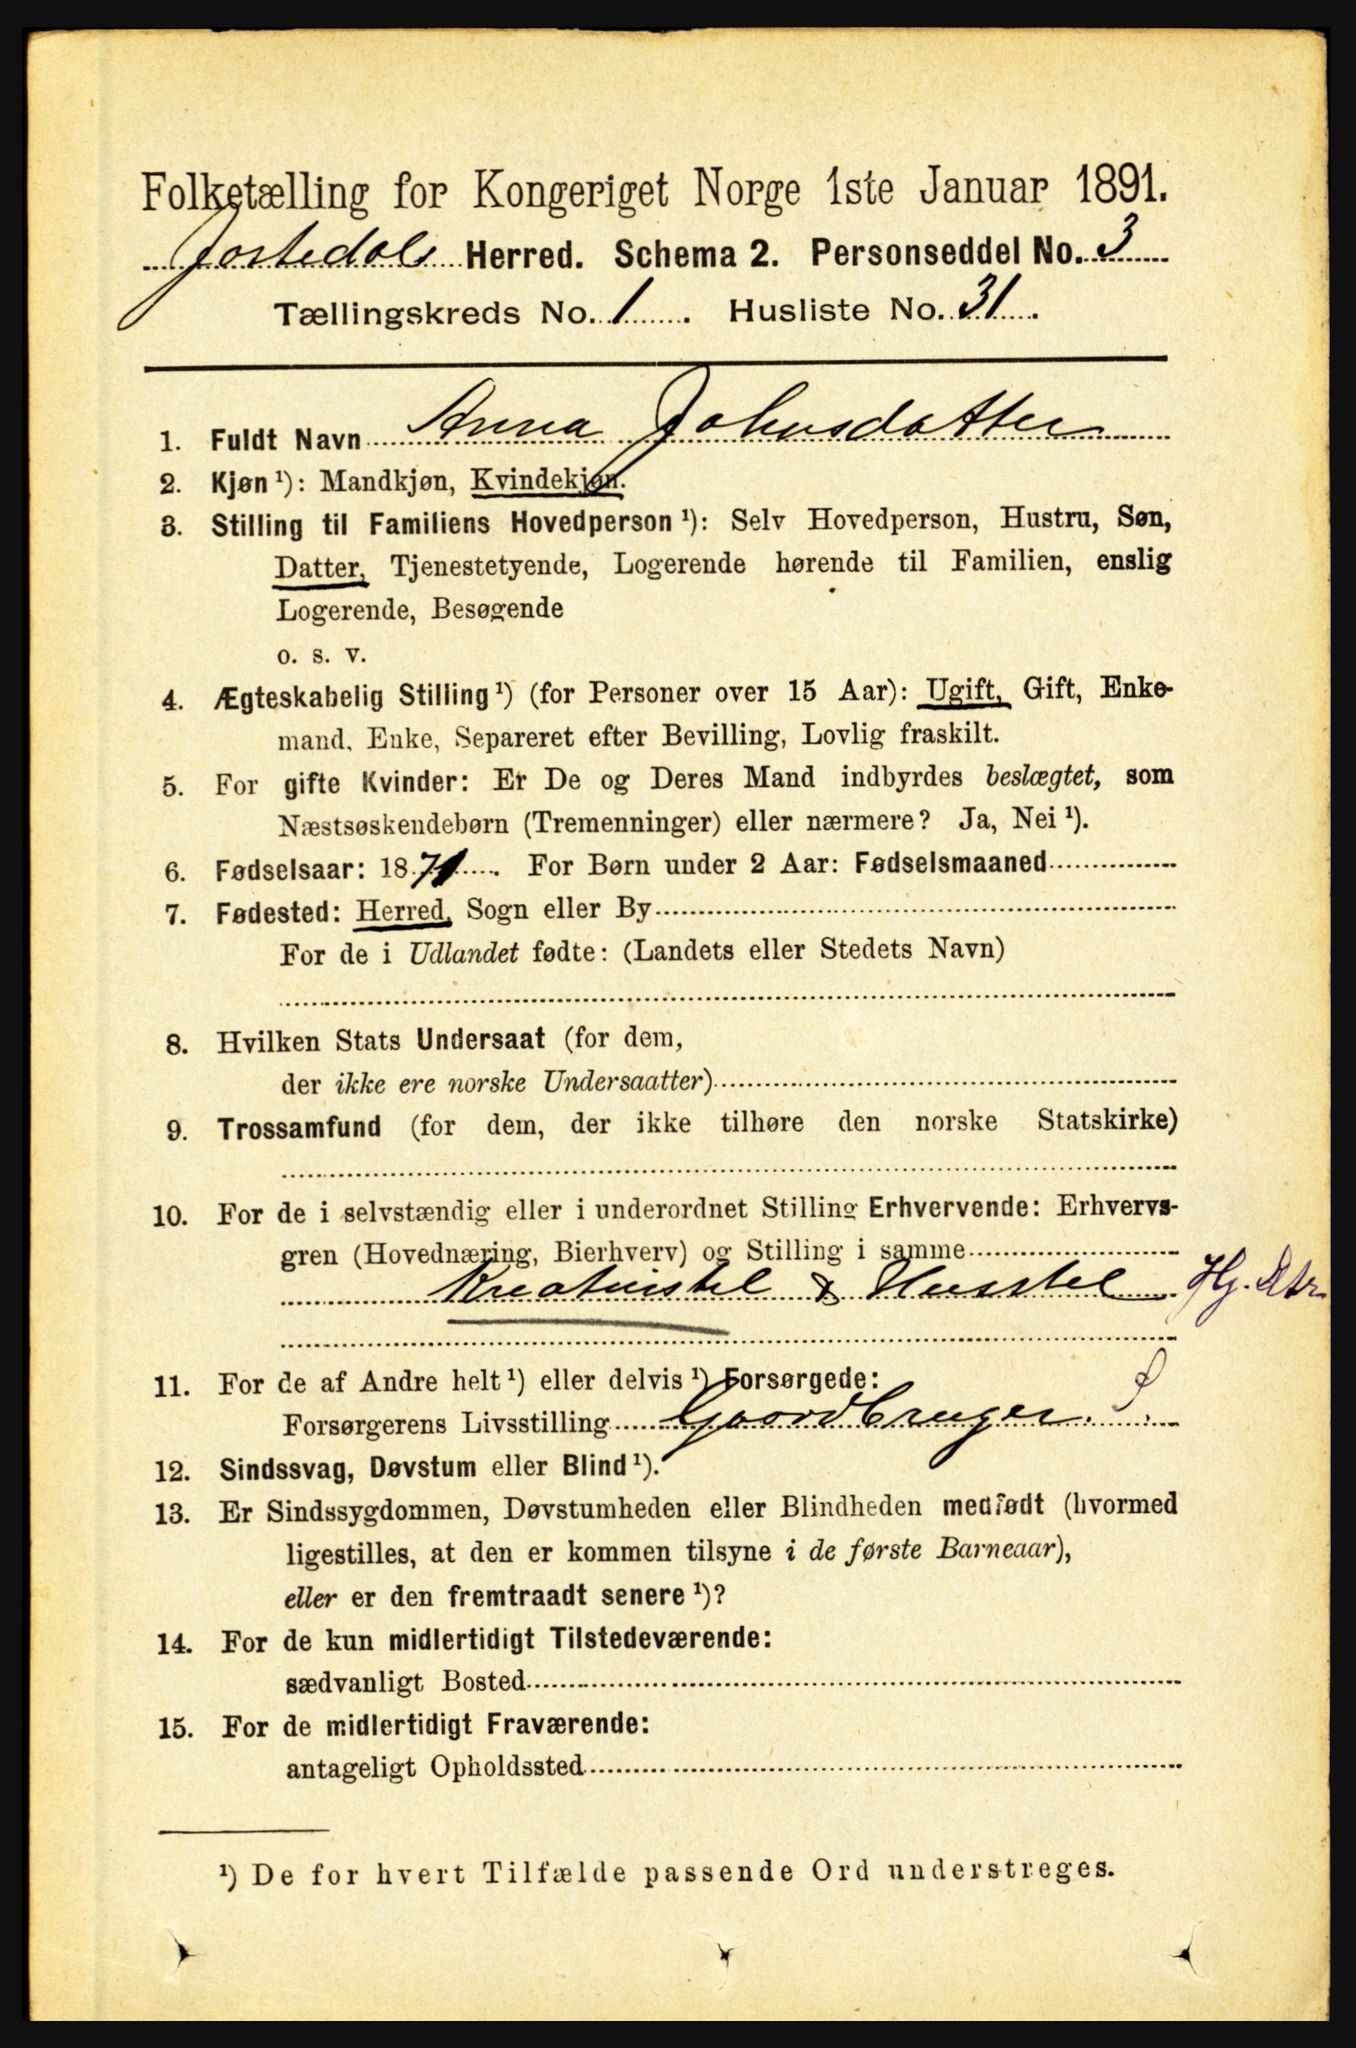 Folketælling for Kongeriget Norge 1ste Januar 1891.
Jostedals Herred. Schema 2. Personseddel No. 3
Tællingskreds No. 1. Husliste No. 31.
1. Fuldt Navn Anna Johnsdatter
2. Kjøn ¹): Mandkjøn, Kvindekjøn.
3. Stilling til Familiens Hovedperson ¹): Selv Hovedperson, Hustru, Søn,
Datter, Tjenestetyende, Logerende hørende til Familien, enslig
Logerende, Besøgende
o. s. v.
4. Ægteskabelig Stilling ¹) (for Personer over 15 Aar): Ugift, Gift, Enke-
mand, Enke, Separeret efter Bevilling, Lovlig fraskilt.
5. For gifte Kvinder: Er De og Deres Mand indbyrdes beslægtet, som
Næstsøskendebørn (Tremenninger) eller nærmere? Ja, Nei ¹).
6. Fødselsaar: 1871. For Børn under 2 Aar: Fødselsmaaned
7. Fødested: Herred, Sogn eller By
For de i Udlandet fødte: (Landets eller Stedets Navn)
8. Hvilken Stats Undersaat (for dem,
der ikke ere norske Undersaatter)
9. Trossamfund (for dem, der ikke tilhøre den norske Statskirke)
10. For de i selvstændig eller i underordnet Stilling Erhvervende: Erhvervs-
gren (Hovednæring, Bierhverv) og Stilling i samme
Kreaturstel & Husstel Hj. Dtr
11. For de af Andre helt ¹) eller delvis ¹) Forsørgede:
Forsørgerens Livsstilling Gaardbruger. S.
12. Sindssvag, Døvstum eller Blind ¹).
13. Er Sindssygdommen, Døvstumheden eller Blindheden medfødt (hvormed
ligestilles, at den er kommen tilsyne i de første Barneaar),
eller er den fremtraadt senere ¹)?
14. For de kun midlertidigt Tilstedeværende:
sædvanligt Bosted
15. For de midlertidigt Fraværende:
antageligt Opholdssted
¹) De for hvert Tilfælde passende Ord understreges.